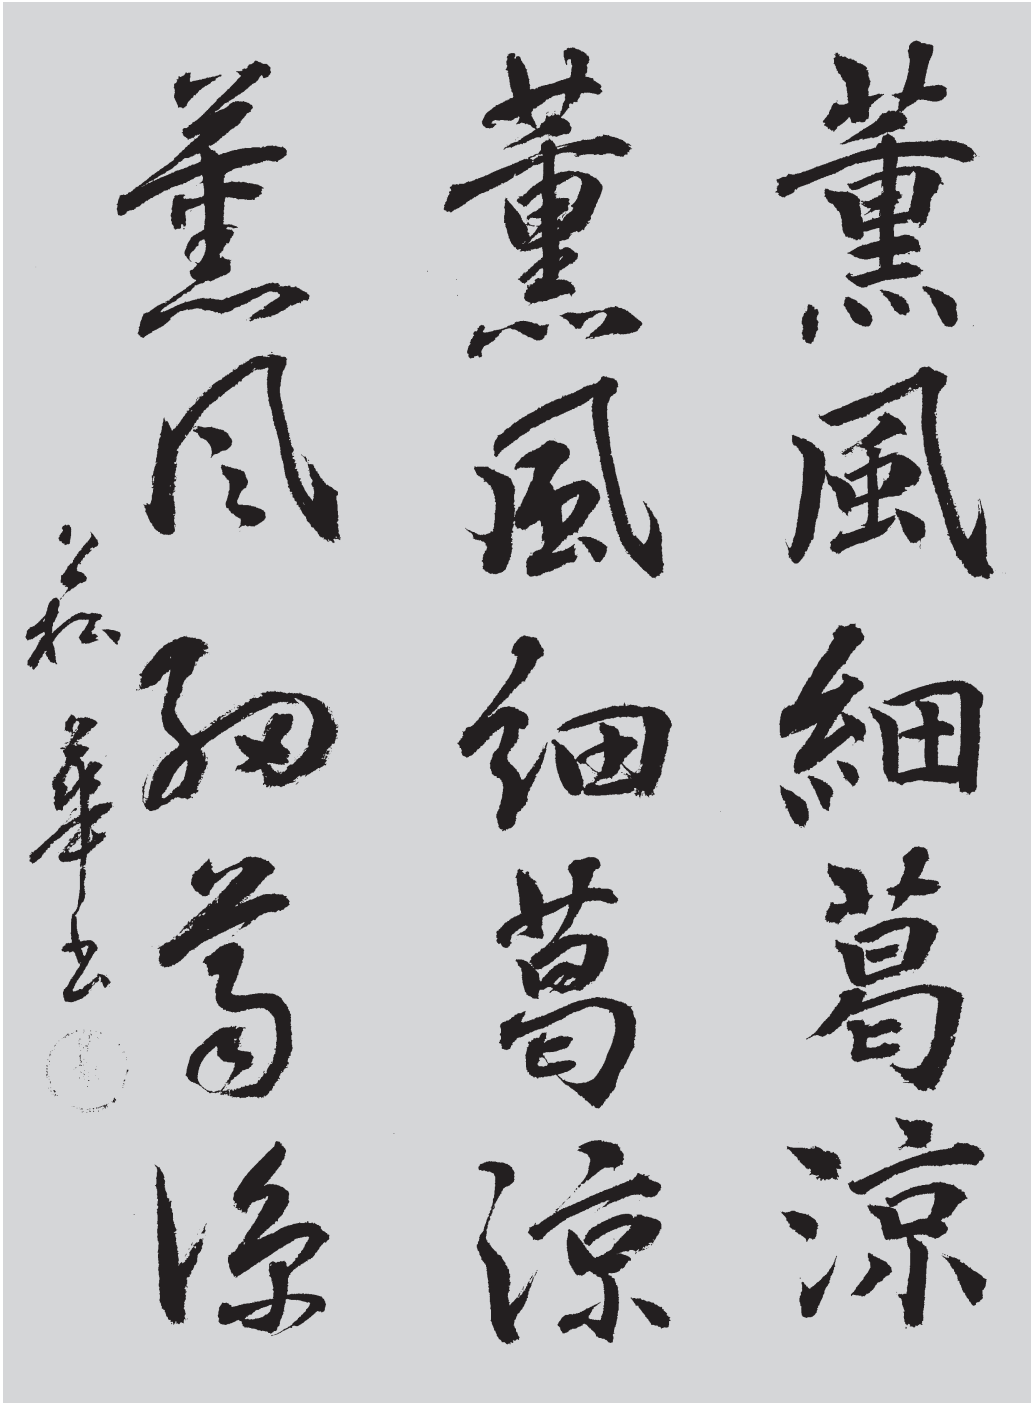 薫風細葛涼
薫風細葛涼
薫風細葛涼
華書